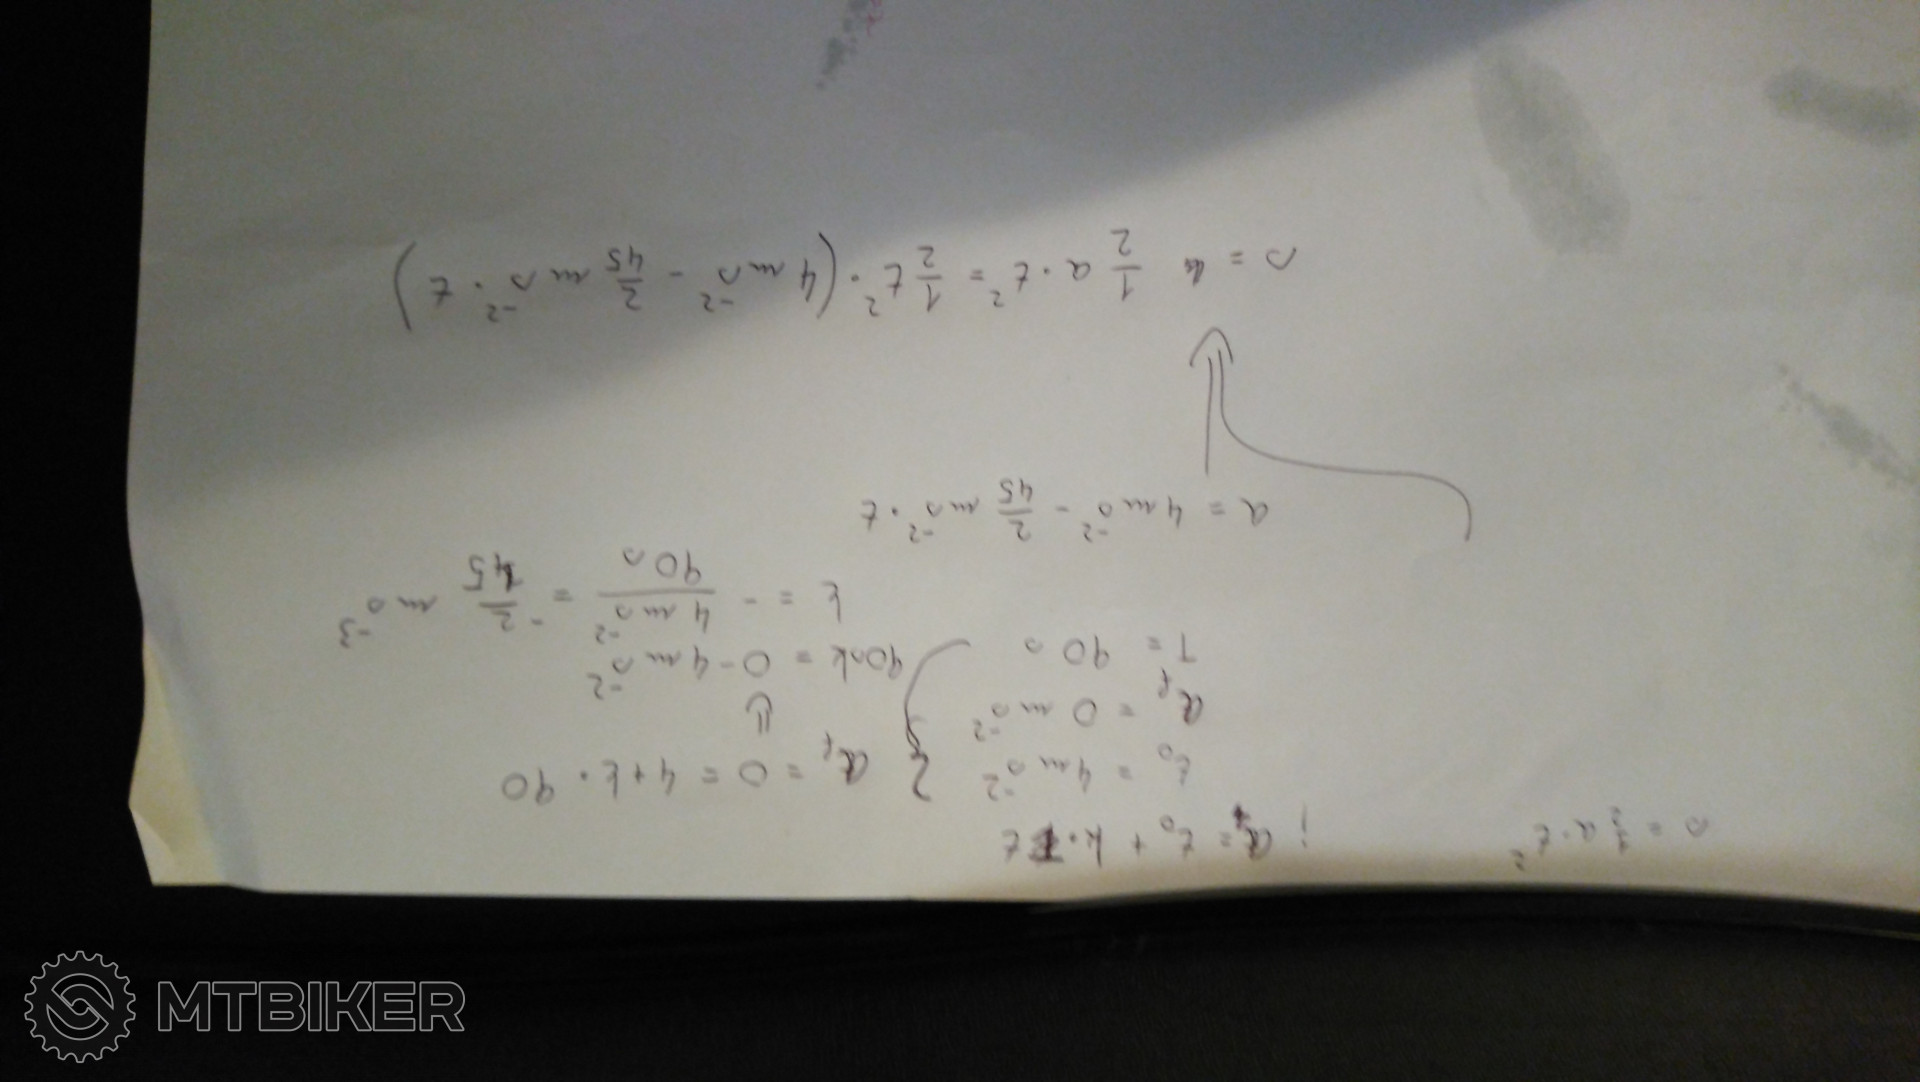 s = 1/2 a · t²
; a = t₀ + k · t
t₀ = 4 ms⁻²
a_f = 0 ms⁻²
T = 90 s
a_f = 0 = 4 + k · 90
⇓
90sk = 0 - 4 ms⁻²
k = - 4 ms⁻² / 90 s = - 2/45 ms⁻³
a = 4 ms⁻² - 2/45 ms⁻² · t
s = 1/2 a · t² = 1/2 t² · (4 ms⁻² - 2/45 ms⁻² · t)
MTBIKER